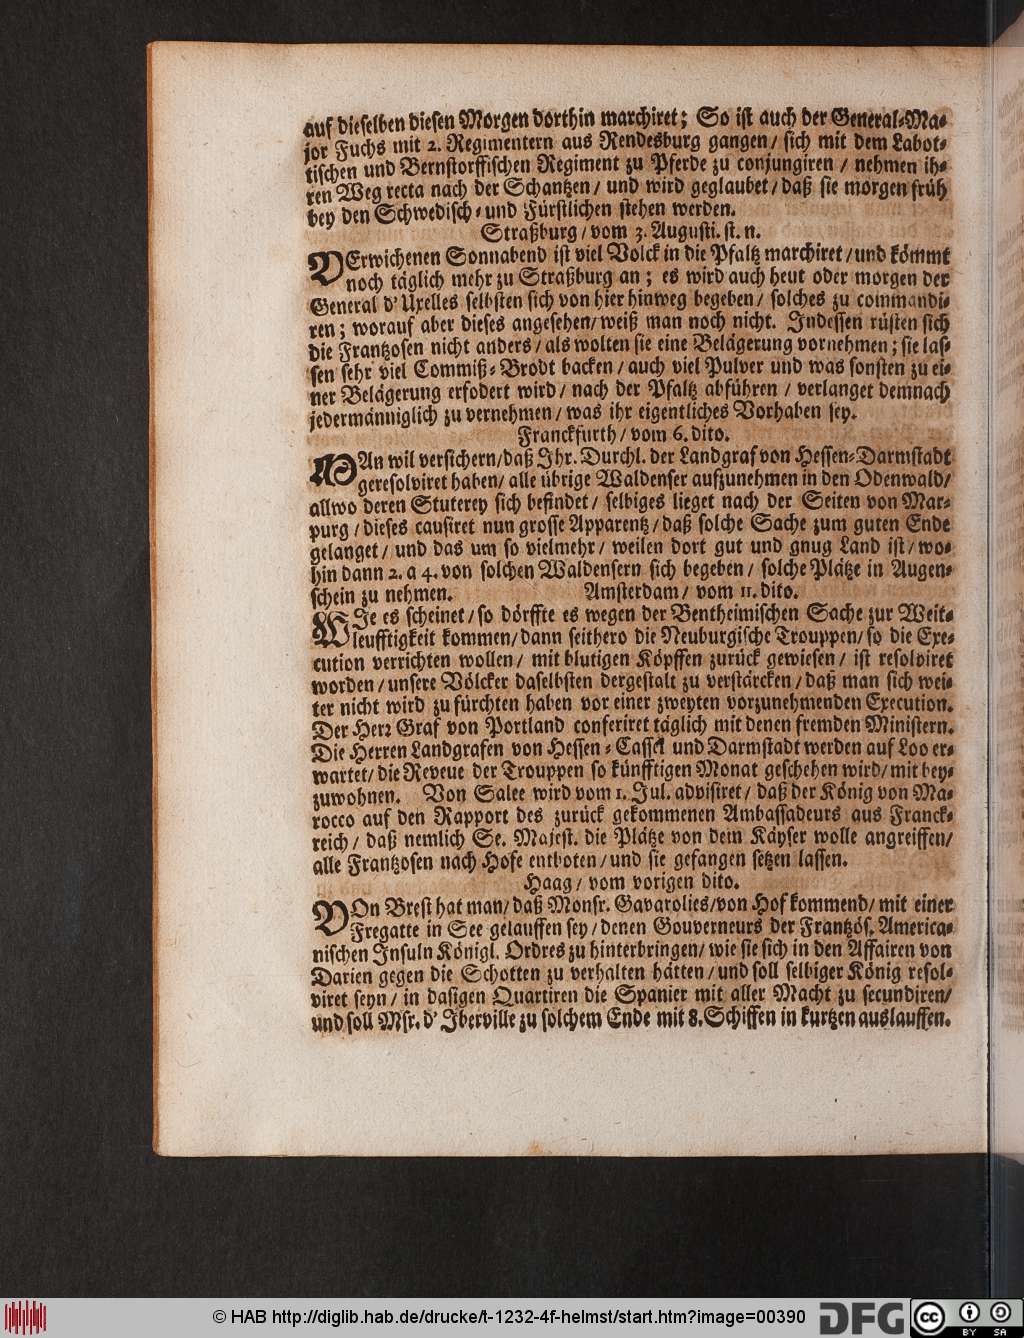 auf dieselben diesen Morgen dorthin marchiret; So ist auch der General-Ma-
jor Fuchs mit 2. Regimentern aus Rendesburg gangen / sich mit dem Labot-
tischen und Bernstorffischen Regiment zu Pferde zu conjungiren / nehmen ih-
ren Weg recta nach der Schantzen / und wird geglaubet / daß sie morgen früh
bey den Schwedisch- und Fürstlichen stehen werden.
Straßburg / vom 3. Augusti. st. n.
VErwichenen Sonnabend ist viel Volck in die Pfaltz marchiret / und kömmt
noch täglich mehr zu Straßburg an; es wird auch heut oder morgen der
General d' Uxelles selbsten sich von hier hinweg begeben / solches zu commandi-
ren; worauf aber dieses angesehen / weiß man noch nicht. Indessen rüsten sich
die Frantzosen nicht anders / als wolten sie eine Belägerung vornehmen; sie las-
sen sehr viel Commiß-Brodt backen / auch viel Pulver und was sonsten zu ei-
ner Belägerung erfodert wird / nach der Pfaltz abführen / verlanget demnach
jedermänniglich zu vernehmen / was ihr eigentliches Vorhaben sey.
Franckfurth / vom 6. dito.
MAn wil versichern / daß Ihr. Durchl. der Landgraf von Hessen-Darmstadt
geresolviret haben / alle übrige Waldenser aufzunehmen in den Odenwald /
allwo deren Stuterey sich befindet / selbiges lieget nach der Seiten von Mar-
purg / dieses causiret nun grosse Apparentz / daß solche Sache zum guten Ende
gelanget / und das um so vielmehr / weilen dort gut und gnug Land ist / wo-
hin dann 2. a 4. von solchen Waldensern sich begeben / solche Plätze in Augen-
schein zu nehmen. Amsterdam / vom 11. dito.
WIe es scheinet / so dörffte es wegen der Bentheimischen Sache zur Weit-
leufftigkeit kommen / dann seithero die Neuburgische Trouppen / so die Exe-
cution verrichten wollen / mit blutigen Köpffen zurück gewiesen / ist resolviret
worden / unsere Völcker daselbsten dergestalt zu verstärcken / daß man sich wei-
ter nicht wird zu fürchten haben vor einer zweyten vorzunehmenden Execution.
Der Herr Graf von Portland conferiret täglich mit denen fremden Ministern.
Die Herren Landgrafen von Hessen-Cassel und Darmstadt werden auf Loo er-
wartet / die Reveue der Trouppen so künfftigen Monat geschehen wird / mit bey-
zuwohnen. Von Salee wird vom 1. Jul. advisiret / daß der König von Ma-
rocco auf den Rapport des zurück gekommenen Ambassadeurs aus Franck-
reich / daß nemlich Se. Majest. die Plätze von dem Käyser wolle angreiffen /
alle Frantzosen nach Hofe entboten / und sie gefangen setzen lassen.
Haag / vom vorigen dito.
VOn Brest hat man / daß Monsr. Gavarolies / von Hof kommend / mit einer
Fregatte in See gelauffen sey / denen Gouverneurs der Frantzös. America-
nischen Insuln Königl. Ordres zu hinterbringen / wie sie sich in den Affairen von
Darien gegen die Schotten zu verhalten hätten / und soll selbiger König resol-
viret seyn / in dasigen Quartiren die Spanier mit aller Macht zu secundiren /
und soll Msr. d' Iberville zu solchem Ende mit 8. Schiffen in kurtzen auslauffen.
© HAB http://diglib.hab.de/drucke/t-1232-4f-helmst/start.htm?image=00390
DFG
cc
BY SA